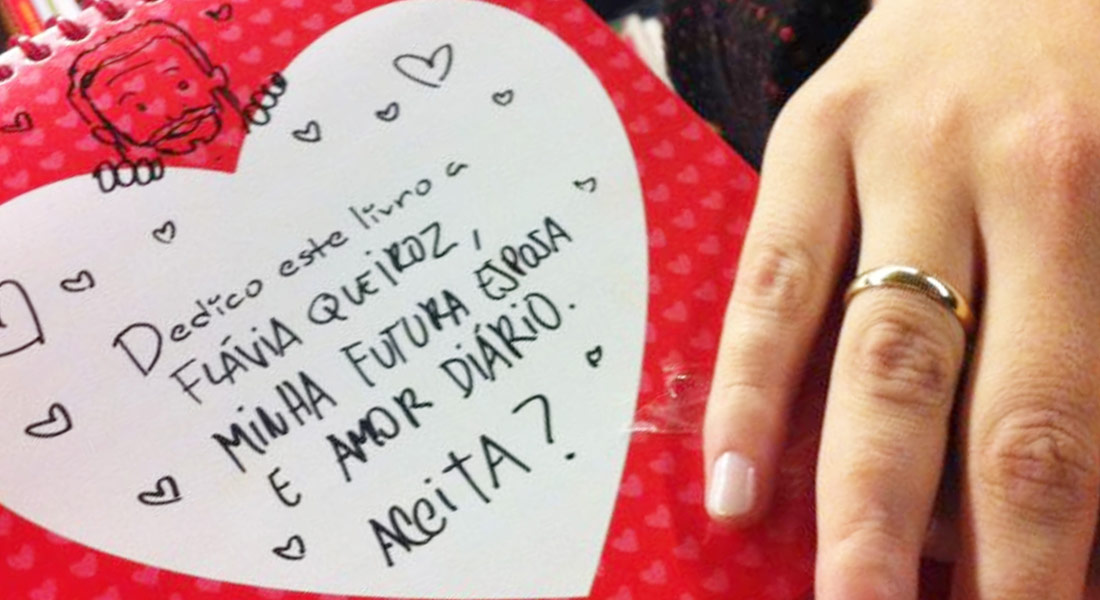 Dedico este livro a
FLÁVIA QUEIROZ,
MINHA FUTURA ESPOSA
E AMOR DIÁRIO.
ACEITA?